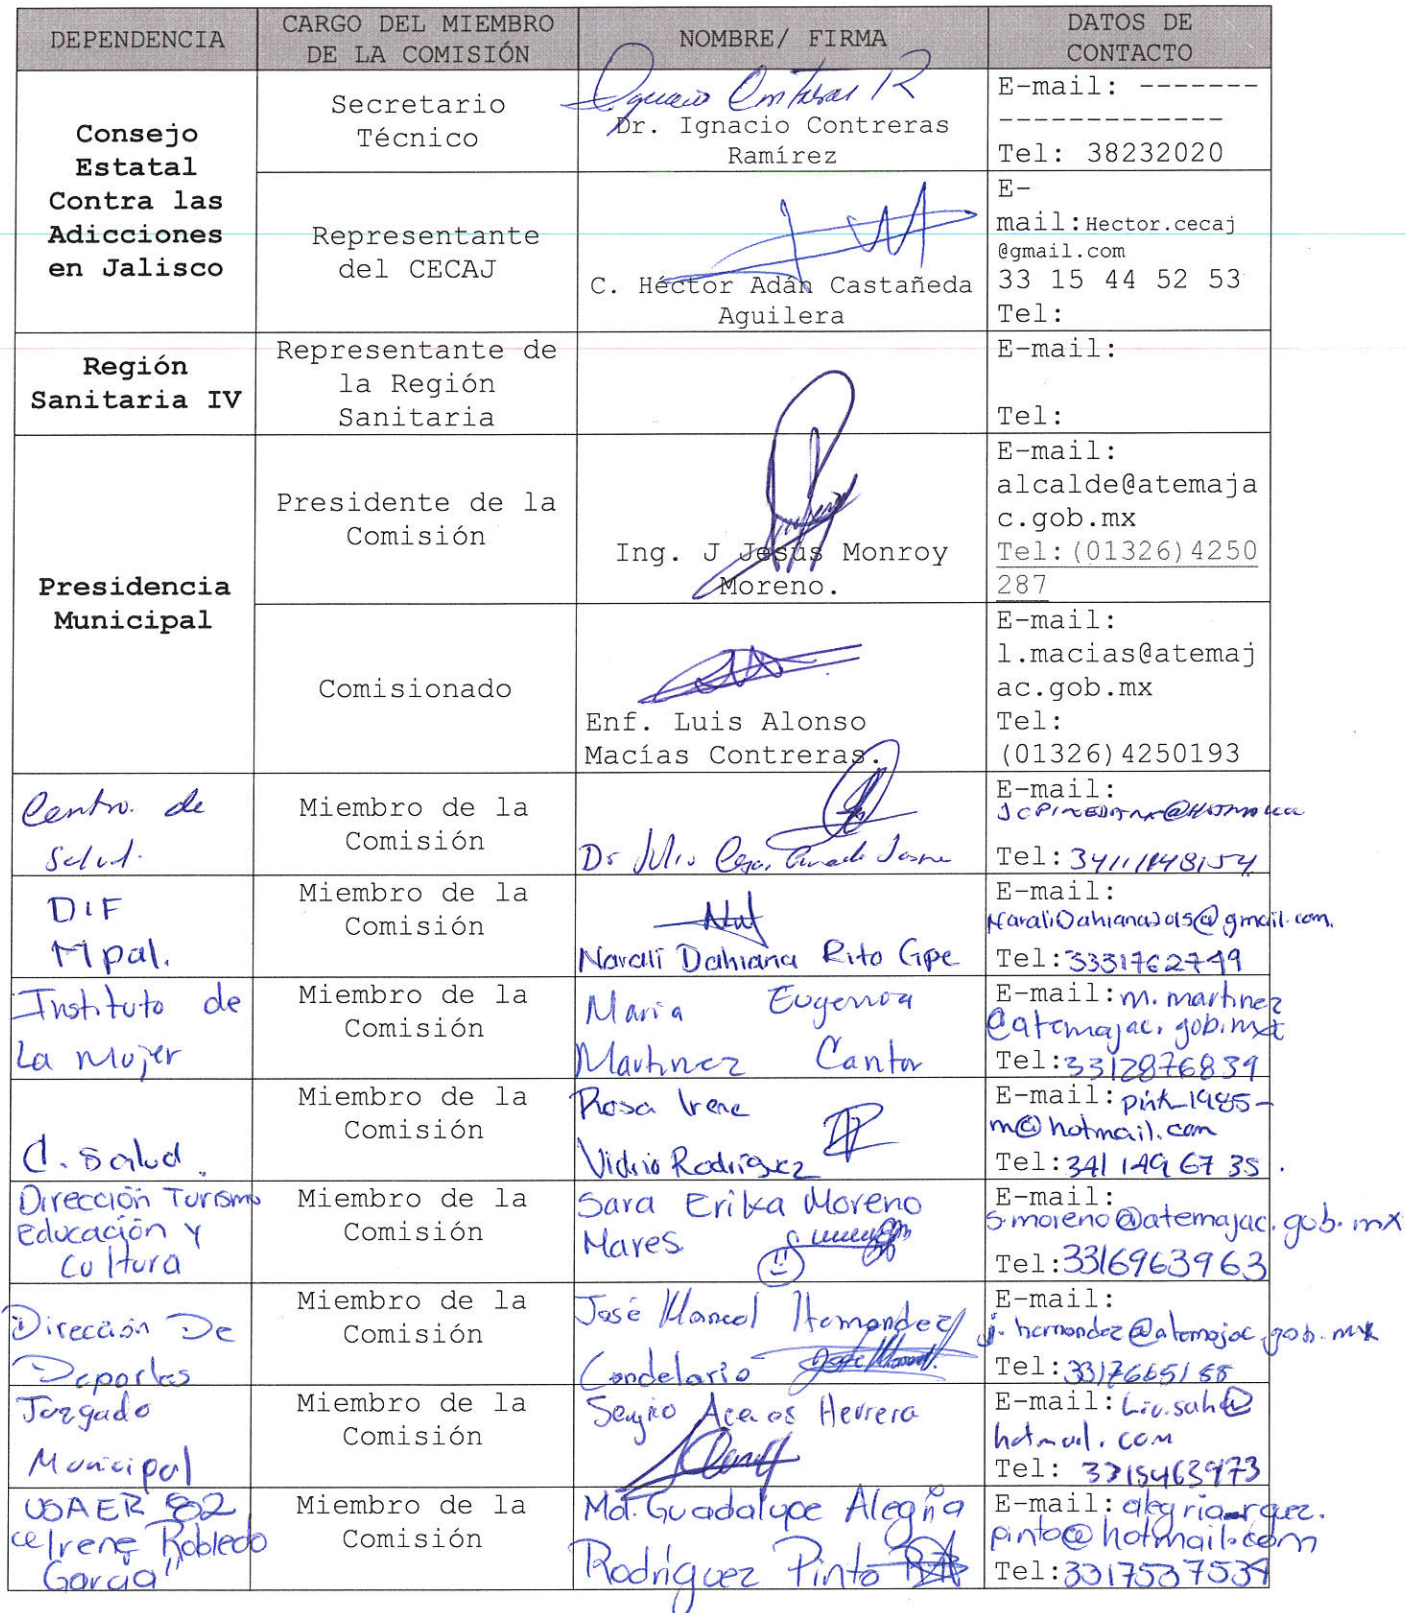 DEPENDENCIA
CARGO DEL MIEMBRO
DE LA COMISIÓN
NOMBRE/ FIRMA
DATOS DE
CONTACTO
Consejo
Estatal
Contra las
Adicciones
en Jalisco
Secretario
Técnico
Ignacio Contreras R
Dr. Ignacio Contreras
Ramírez
E-mail: -------
-------------
Tel: 38232020
Representante
del CECAJ
C. Héctor Adán Castañeda
Aguilera
E-
mail:Hector.cecaj
@gmail.com
33 15 44 52 53
Tel:
Región
Sanitaria IV
Representante de
la Región
Sanitaria
E-mail:
Tel:
Presidencia
Municipal
Presidente de la
Comisión
Ing. J Jesús Monroy
Moreno.
E-mail:
alcalde@atemaja
c.gob.mx
Tel:(01326)4250
287
Comisionado
Enf. Luis Alonso
Macías Contreras.
E-mail:
l.macias@atemaj
ac.gob.mx
Tel:
(01326)4250193
Centro de
Salud.
Miembro de la
Comisión
Dr Julio Cesar
E-mail:
Tel:
DIF
Mpal.
Miembro de la
Comisión
Narali Dahiana Rito Gpe
E-mail:
Tel:3331762749
Instituto de
La Mujer
Miembro de la
Comisión
Maria Eugenia
Martinez Cantor
E-mail:m.martinez
@atemajac.gob.mx
Tel:3312876839
C. Salud.
Miembro de la
Comisión
Rosa Irene
Vidrio Rodríguez
E-mail: pink_1985-
m@hotmail.com
Tel:341 149 67 35.
Dirección Turismo
Educación y
Cultura
Miembro de la
Comisión
Sara Erika Moreno
Mares
E-mail:
s.moreno@atemajac.gob.mx
Tel:3316963963
Dirección De
Deportes
Miembro de la
Comisión
José Manuel Hernandez
Candelario
E-mail:
j.hernandez@atemajac.gob.mx
Tel:3317665188
Juzgado
Municipal
Miembro de la
Comisión
Sergio Aceves Herrera
E-mail: Liv.sah@
hotmail.com
Tel: 3315463973
USAER 82
"Irene Robledo
García"
Miembro de la
Comisión
Ma. Guadalupe Alegría
Rodríguez Pinto
E-mail: alegria_rguez.
pinto@hotmail.com
Tel:3317537539